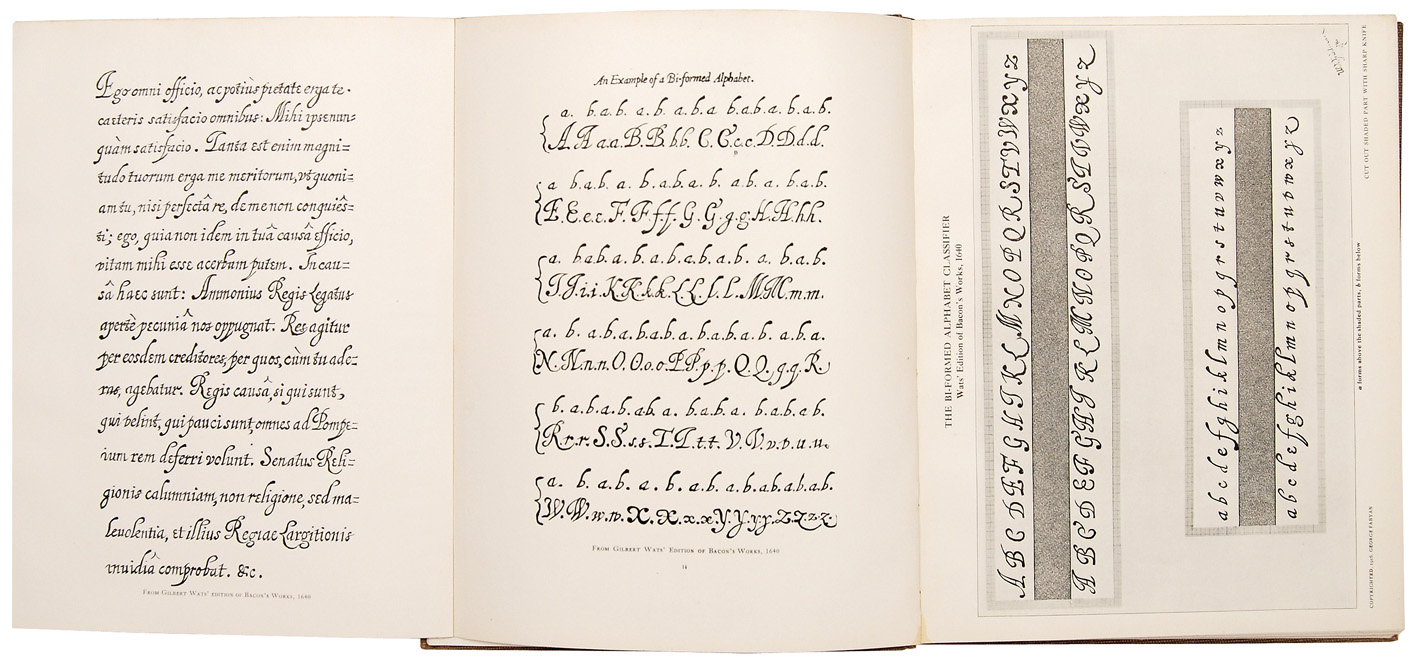 Ego omni officio, ac potiùs pietate erga te
caeteris satisfacio omnibus: Mihi ipse nun=
quàm satisfacio. Tanta est enim magni=
tudo tuorum erga me meritorum, vt quoni=
am tu, nisi perfectâ re, de me non conquiês=
ti; ego, quia non idem in tuâ causâ efficio,
vitam mihi esse acerbam putem. In cau=
sâ haec sunt: Ammonius Regis Legatus
apertè pecuniâ nos oppugnat. Res agitur
per eosdem creditores, per quos, cùm tu ade=
ras, agebatur. Regis causâ, si qui sunt,
qui velint, qui pauci sunt, omnes ad Pompe=
ium rem deferri volunt. Senatus Reli=
gionis calumniam, non religione, sed ma=
levolentia, et illius Regiae Largitionis
invidiâ comprobat. &c.
FROM GILBERT WATS' EDITION OF BACON'S WORKS, 1640
An Example of a Bi-formed Alphabet.
a. b.a.b. a. b. a.b.a b.a.b.a. b.a.b.
A.A.a.a.B.B.b.b. C.C.c.c.D.D.d.d.
a b.a.b. a. b.a.b.a. b. a.b. a. b.a.b.
E.E.e.e.F.F.f.f.G.G.g.g.H.H.h.h.
a. b.a.b. a. b. a.b. a.b.a.b. a. b.a.b.
I.I.i.i.K.K.k.k.L.L.l.l.M.M.m.m.
a. b. a.b. a.b.a.b.a.b.a.b. a.b.a.
N.N.n.n.O.O.o.o.P.P.p.p.Q.Q.q.q.R.
b. a.b.a.b.a.b. a. b.a.b.a. b.a.b.a b.
R.r.r.S.S.s.s.T.T.t.t.V.V.v.v.u.u.
a. b. a.b. a. b. a.b. a.b.a.b.a.b.
W.W.w.w.X.X.x.x.Y.Y.y.y.Z.Z.z.z.
FROM GILBERT WATS' EDITION OF BACON'S WORKS, 1640
34
THE BI-FORMED ALPHABET CLASSIFIER
Wats' Edition of Bacon's Works, 1640
A B C D E F G H I K L M N O P Q R S T V W X Y Z
A B C D E F G H I K L M N O P Q R S T V W X Y Z
a b c d e f g h i k l m n o p q r s t u v w x y z
a b c d e f g h i k l m n o p q r s t u v w x y z
a forms above the shaded parts, b forms below
COPYRIGHTED 1916, GEORGE FABYAN
CUT OUT SHADED PART WITH SHARP KNIFE